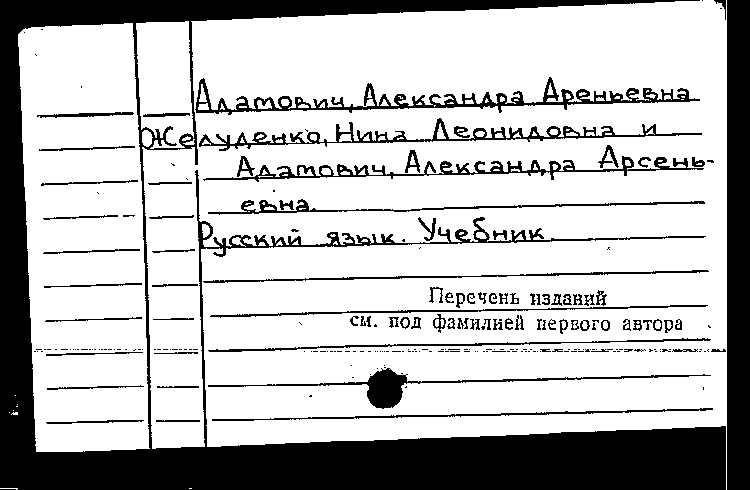 Адамович, Александра Ареньевна
Желуденко, Нина Леонидовна и
Адамович, Александра Арсень-
евна.
Русский язык. Учебник
Перечень изданий
см. под фамилией первого автора